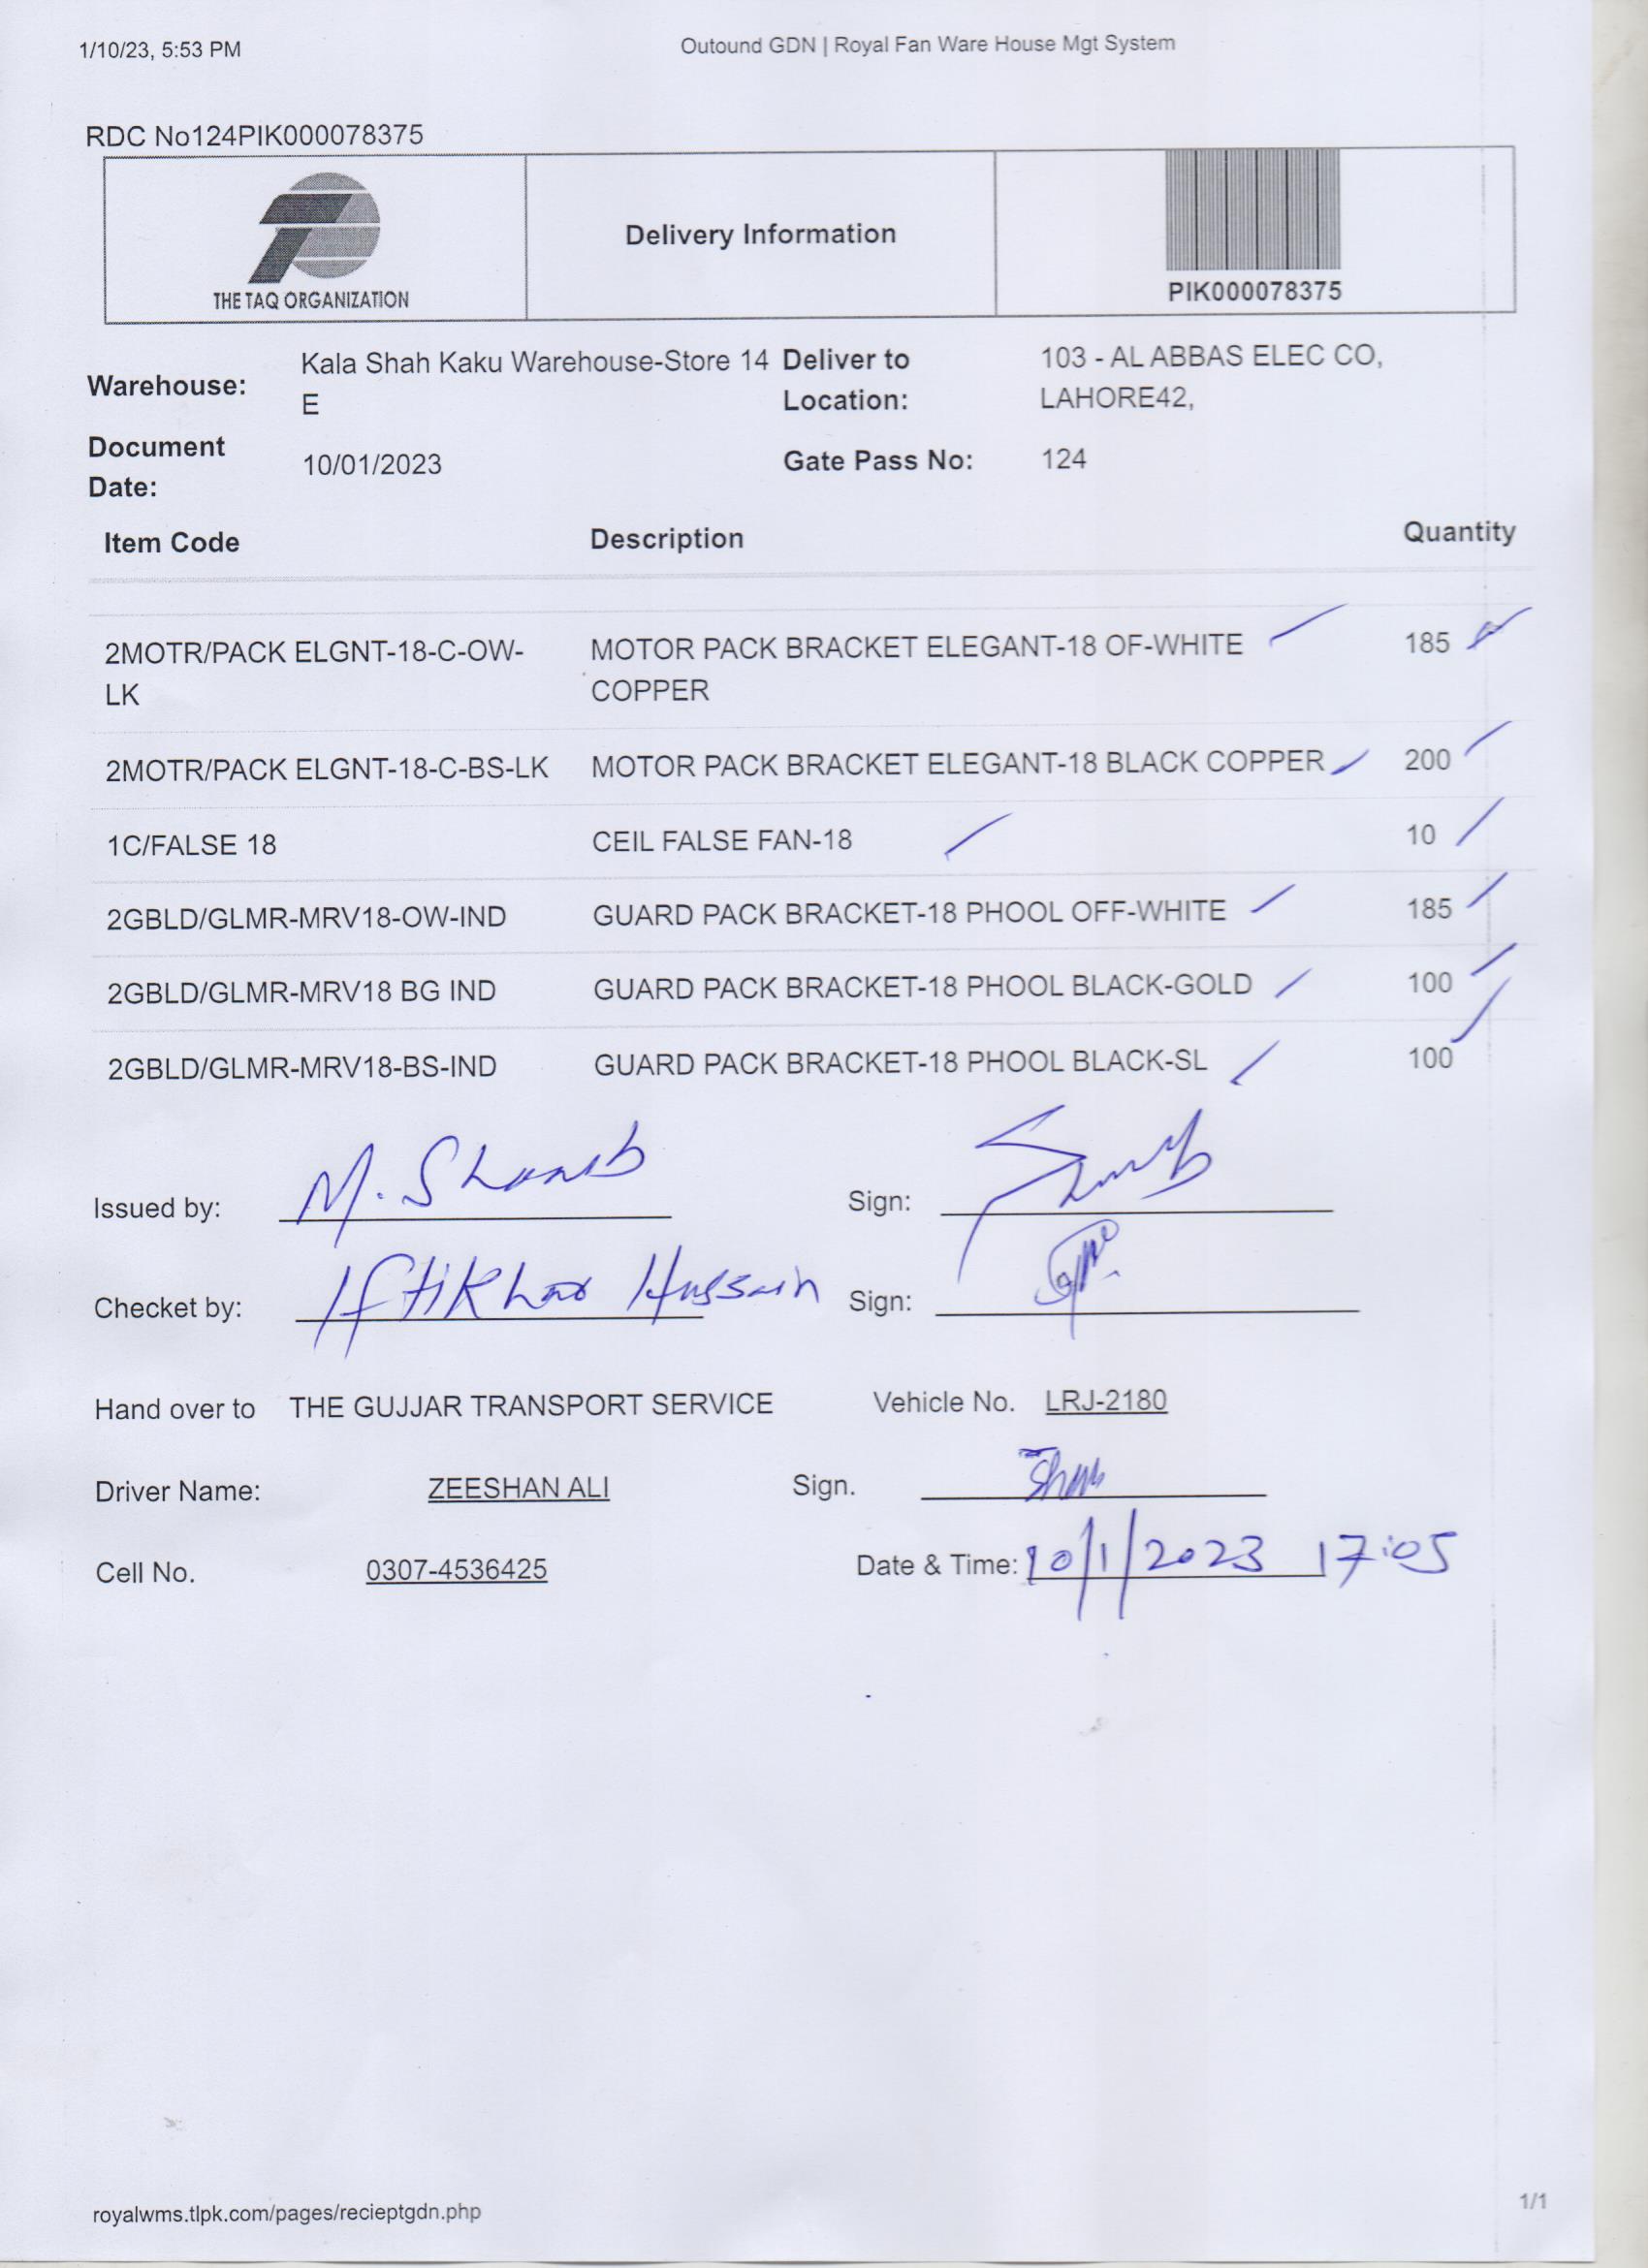 1/10/23, 5:53 PM Outound GDN | Royal Fan Ware House Mgt System
RDC No124PIK000078375
THE TAQ ORGANIZATION
Delivery Information
PIK000078375
Warehouse: Kala Shah Kaku Warehouse-Store 14 E
Deliver to Location: 103 - AL ABBAS ELEC CO, LAHORE42,
Document Date: 10/01/2023
Gate Pass No: 124
Item Code Description Quantity
2MOTR/PACK ELGNT-18-C-OW-LK MOTOR PACK BRACKET ELEGANT-18 OF-WHITE COPPER 185
2MOTR/PACK ELGNT-18-C-BS-LK MOTOR PACK BRACKET ELEGANT-18 BLACK COPPER 200
1C/FALSE 18 CEIL FALSE FAN-18 10
2GBLD/GLMR-MRV18-OW-IND GUARD PACK BRACKET-18 PHOOL OFF-WHITE 185
2GBLD/GLMR-MRV18 BG IND GUARD PACK BRACKET-18 PHOOL BLACK-GOLD 100
2GBLD/GLMR-MRV18-BS-IND GUARD PACK BRACKET-18 PHOOL BLACK-SL 100
Issued by: M. Sign:
Checket by: Iftikhar Hussain Sign:
Hand over to THE GUJJAR TRANSPORT SERVICE Vehicle No. LRJ-2180
Driver Name: ZEESHAN ALI Sign.
Cell No. 0307-4536425 Date & Time: 10/1/2023 17:05
royalwms.tlpk.com/pages/recieptgdn.php 1/1